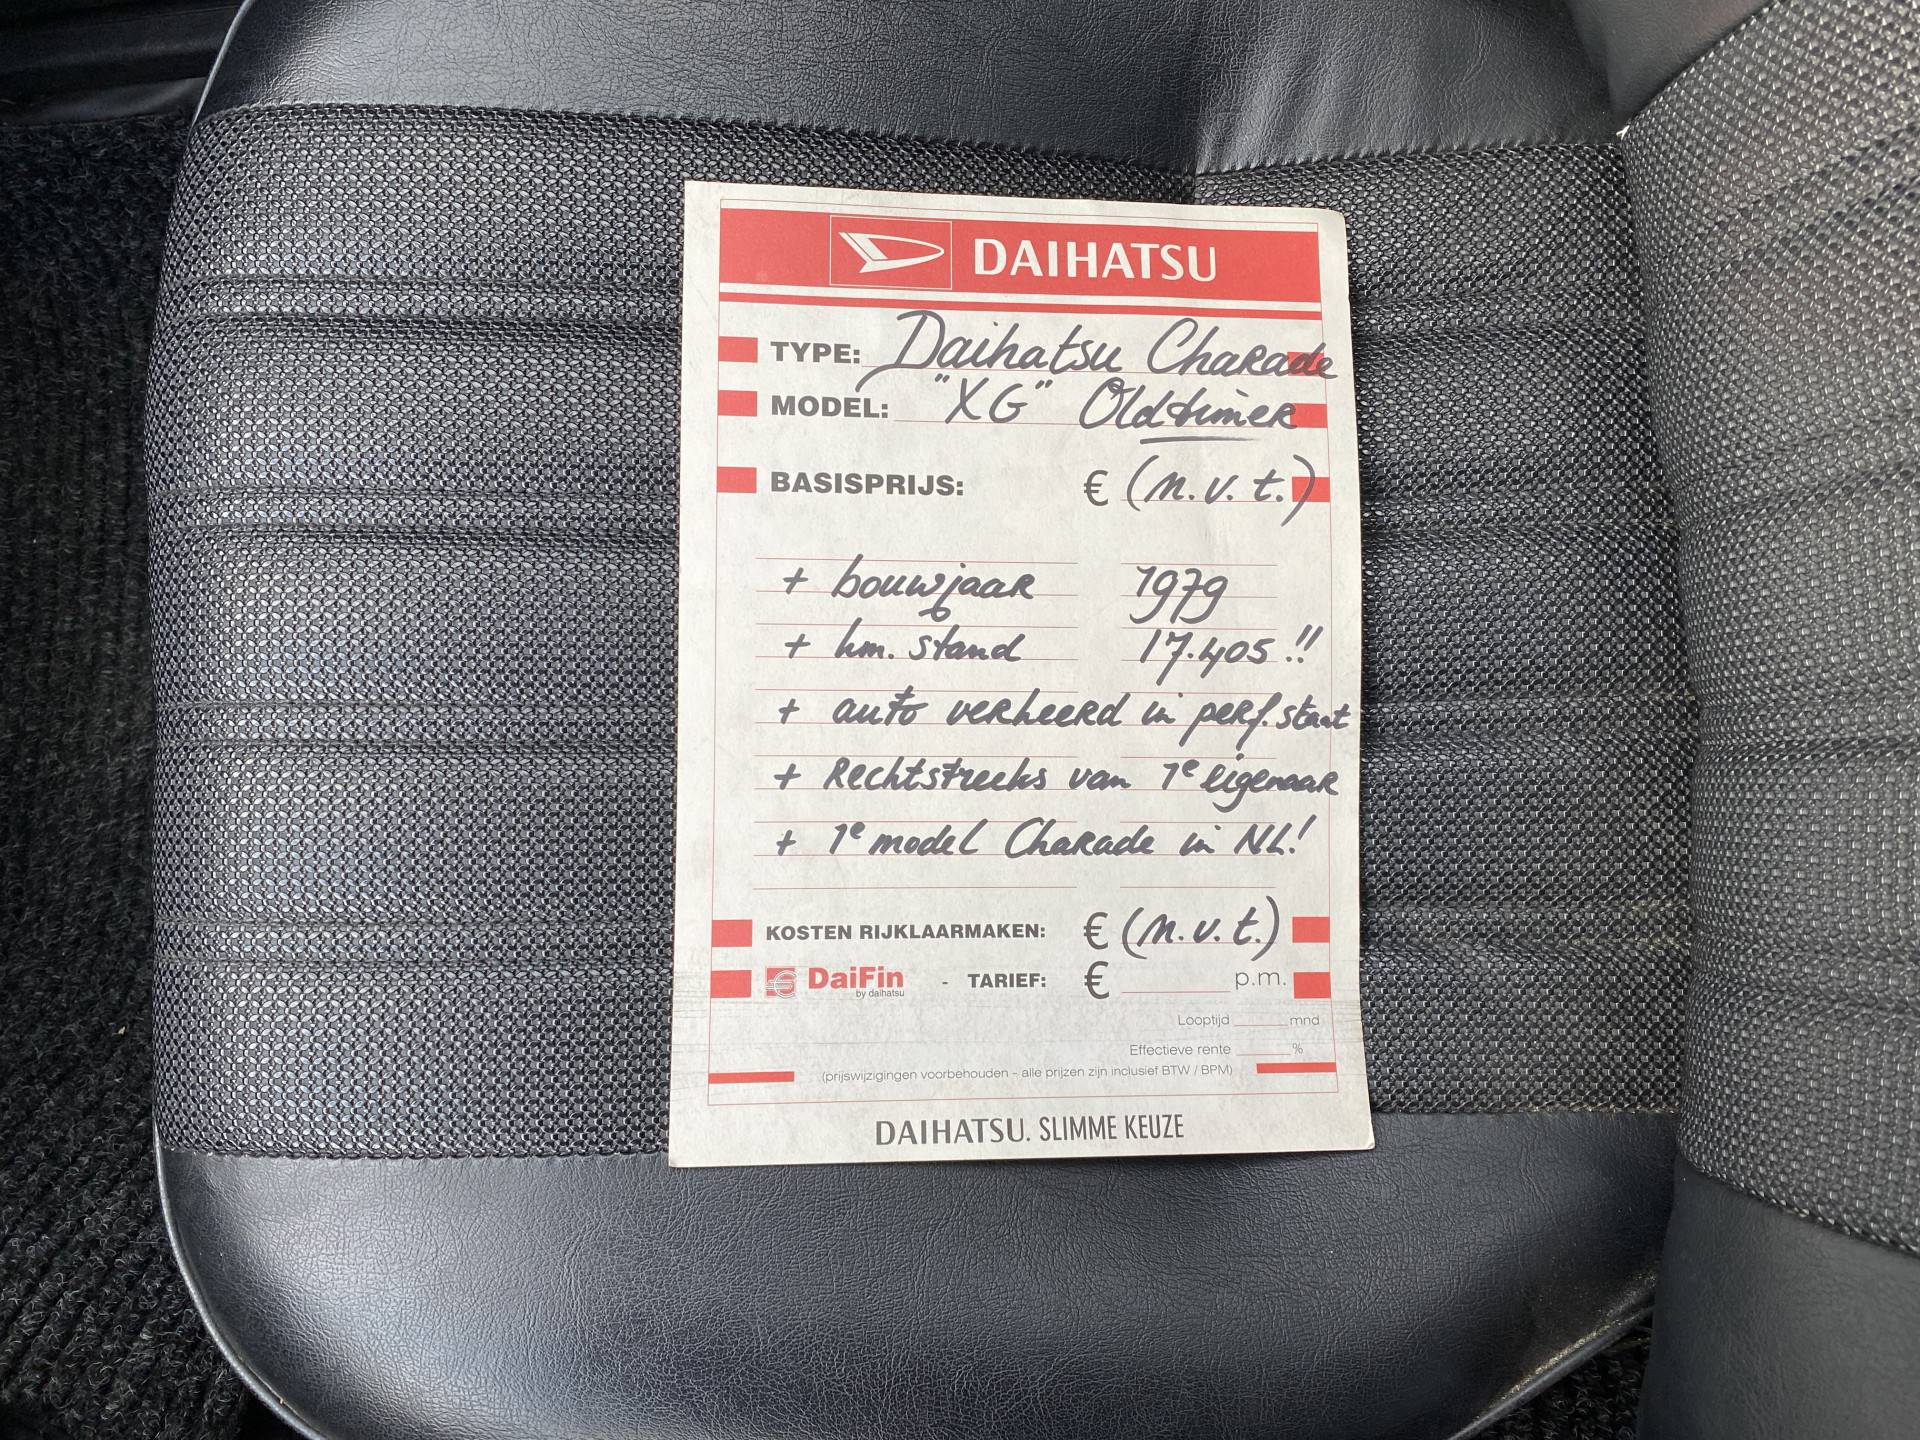 DAIHATSU
TYPE: Daihatsu Charade
MODEL: "XG" Oldtimer
BASISPRIJS: € (n.v.t.)
+ bouwjaar 1979
+ km. stand 17.405!!
+ auto verkeerd in perf. staat
+ Rechtstreeks van 1e eigenaar
+ 1e model Charade in NL!
KOSTEN RIJKLAARMAKEN: € (n.v.t.)
€ DaiFin - TARIEF: € p.m.
by daihatsu
Looptijd mnd
Effectieve rente %
(prijswijzigingen voorbehouden - alle prijzen zijn inclusief BTW / BPM)
DAIHATSU. SLIMME KEUZE